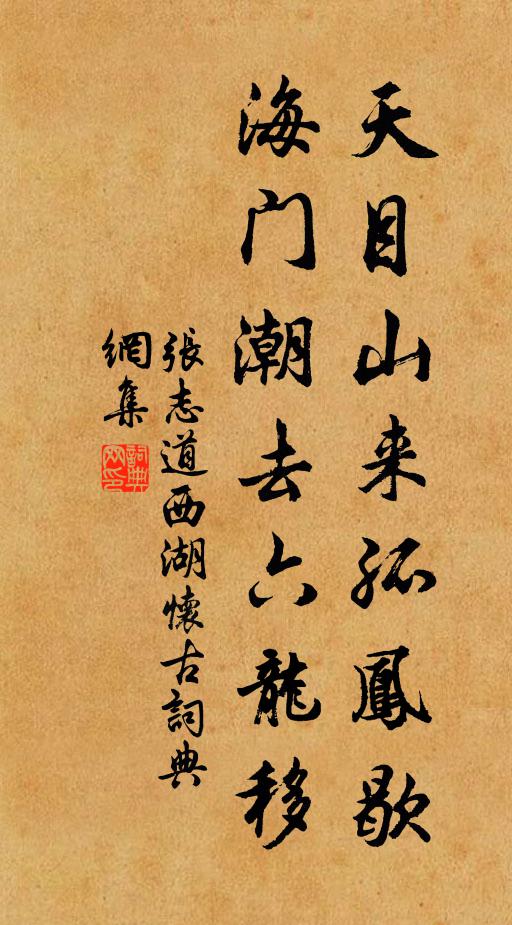 天目山来孤鳳歇
海门潮去六龍移
張志道西湖懷古詞典
網集
詞典
网印